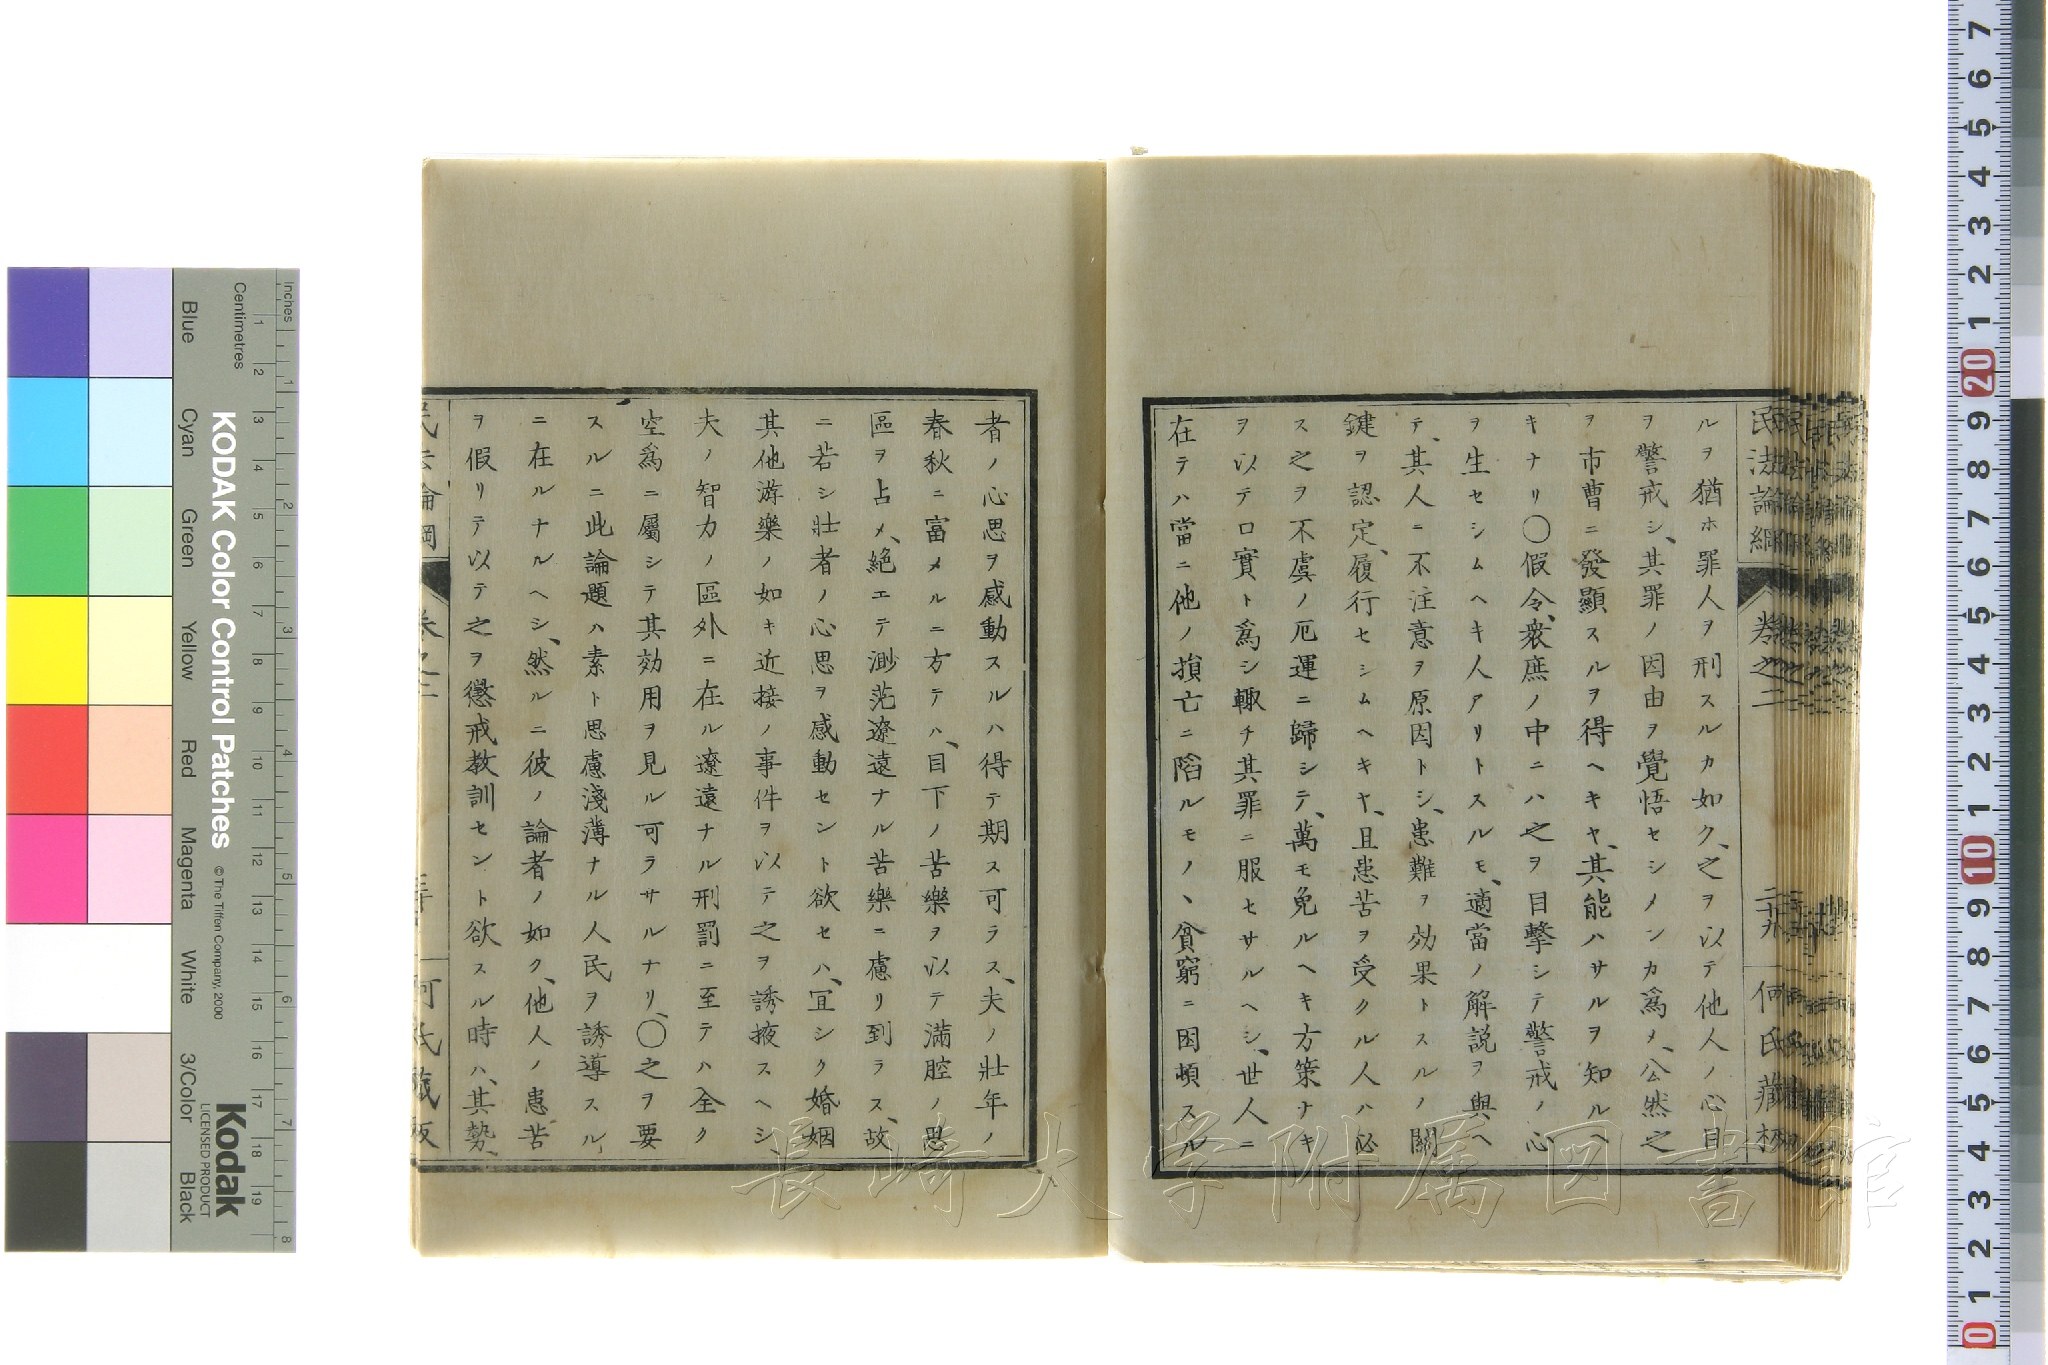 民法論綱
卷之二
二十九
何氏藏板
ルヲ猶ホ罪人ヲ刑スルカ如ク、之ヲ以テ他人ノ心目
ヲ警戒シ、其罪ノ因由ヲ覺悟セシメンカ爲メ、公然之
ヲ市曹ニ發顯スルヲ得ヘキヤ、其能ハサルヲ知ルヘ
キナリ〇假令、衆庶ノ中ニハ之ヲ目擊シテ警戒ノ心
ヲ生セシムヘキ人アリトスルモ、適當ノ解說ヲ與ヘ
テ、其人ニ不注意ヲ原因トシ、患難ヲ効果トスルノ關
鍵ヲ認定、履行セシムヘキヤ、且患苦ヲ受クル人ハ必
ス之ヲ不虞ノ厄運ニ歸シテ、萬モ免ルヘキ方策ナキ
ヲ以テ口實ト爲シ輙チ其罪ニ服セサルヘシ、世人ニ
在テハ當ニ他ノ損亡ニ陷ルモノ、貧窮ニ困頓スル
者ノ心思ヲ感動スルハ得テ期ス可ラス、夫ノ壯年ノ
春秋ニ富メルニ方テハ、目下ノ苦樂ヲ以テ滿腔ノ思
區ヲ占メ、絕エテ渺茫遼遠ナル苦樂ニ慮リ到ラス、故
ニ若シ壯者ノ心思ヲ感動セント欲セハ、宜シク婚姻
其他游樂ノ如キ近接ノ事件ヲ以テ之ヲ誘掖スヘシ
夫ノ智力ノ區外ニ在ル遼遠ナル刑罰ニ至テハ全ク
空爲ニ屬シテ其効用ヲ見ル可ラサルナリ、〇之ヲ要
スルニ此論題ハ素ト思慮淺薄ナル人民ヲ誘導スル
ニ在ルナルヘシ、然ルニ彼ノ論者ノ如ク、他人ノ患苦
ヲ假リテ以テ之ヲ懲戒教訓セント欲スル時ハ、其勢、
民法論綱
卷之二
何氏藏板
長崎大学附属図書館
KODAK Color Control Patches
© The Tiffen Company, 2000
Kodak
LICENSED PRODUCT
Inches
1 2 3 4 5 6 7 8
Centimetres
1 2 3 4 5 6 7 8 9 10 11 12 13 14 15 16 17 18 19
Blue
Cyan
Green
Yellow
Red
Magenta
White
3/Color
Black
7 6 5 4 3 2 1 20 9 8 7 6 5 4 3 2 1 10 9 8 7 6 5 4 3 2 1 0